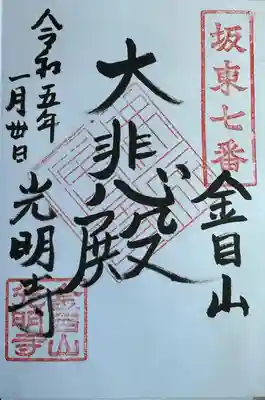 坂東七番
金目山
大悲殿
光明寺
令和五年
一月卅日
金目山
光明寺